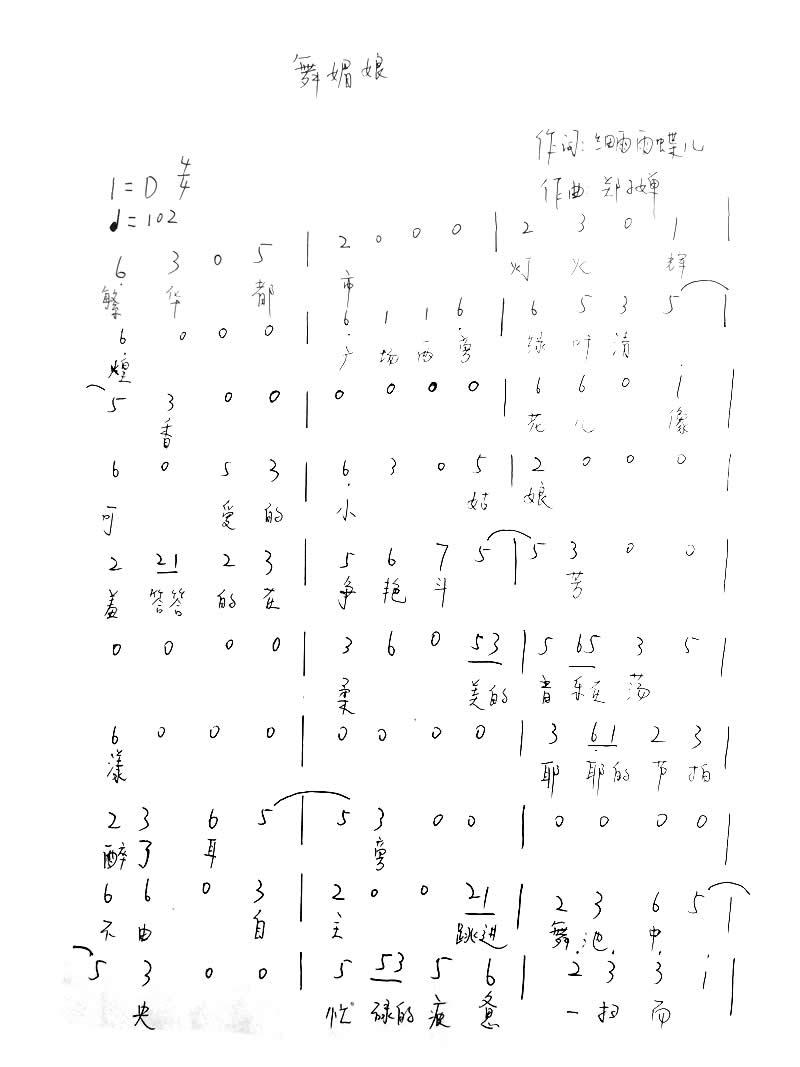 舞媚娘
作词:细雨雨蝶儿
1=D 4/4
作曲 郑子婵
♩=102
6̣ 3 0 5 | 2 0 0 0 | 2 3 0 1 |
繁 华 都 市 灯 火 辉
6 0 0 0 | 6̣ 1 1 6̣ | 6 5 3 5 |
煌 广 场 两 旁 绿 叶 清
5 3 0 0 | 0 0 0 0 | 6 6 0 i |
香 花 儿 像
6 0 5 3 | 6̣ 3 0 5 | 2 0 0 0 |
可 爱 的 小 姑 娘
2 21 2 3 | 5 6 7 5 | 5 3 0 0 |
羞 答答 的 在 争 艳 斗 芳
0 0 0 0 | 3 6 0 53 | 5 65 3 5 |
柔 美的 音 乐在 荡
6 0 0 0 | 0 0 0 0 | 3 6̣1 2 3 |
漾 耶 耶的 节 拍
2 3 6 5 | 5 3 0 0 | 0 0 0 0 |
醉 了 耳 旁
6 6 0 3 | 2 0 0 21 | 2 3 6 5 |
不 由 自 主 跳进 舞 池 中
5 3 0 0 | 5 53 5 6 | 2̇ 3̇ 3̇ i |
央 忙 碌的 疲 惫 一 扫 而